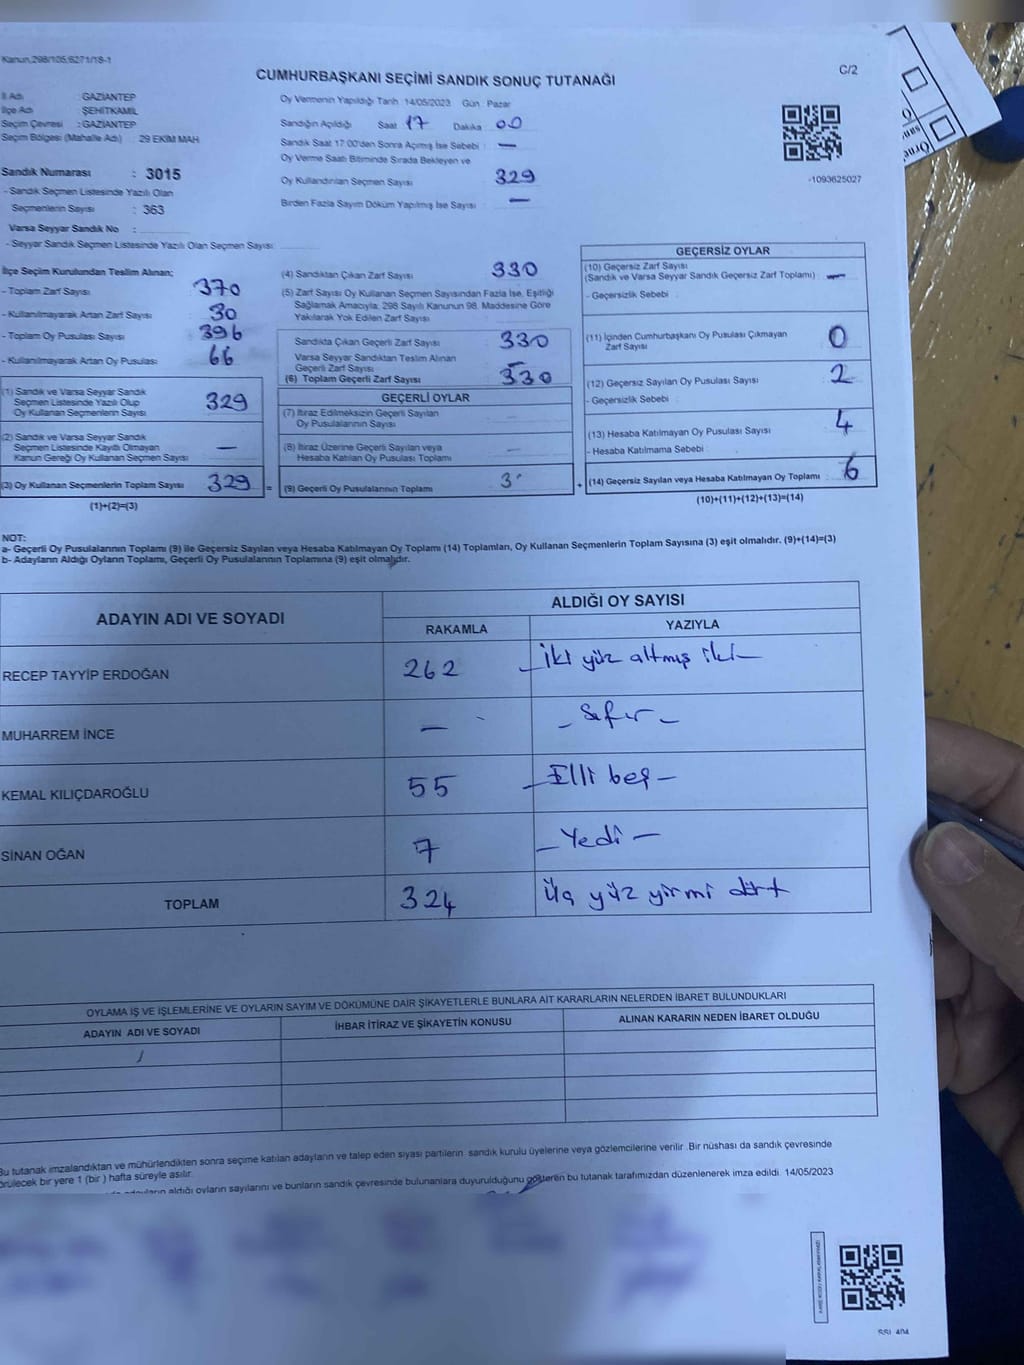 Kanun,298/105,6271/18-1
C/2
CUMHURBAŞKANI SEÇİMİ SANDIK SONUÇ TUTANAĞI
İl Adı : GAZİANTEP
İlçe Adı : ŞEHİTKAMİL
Seçim Çevresi : GAZİANTEP
Seçim Bölgesi (Mahalle Adı) : 29 EKİM MAH
Sandık Numarası : 3015
- Sandık Seçmen Listesinde Yazılı Olan
Seçmenlerin Sayısı : 363
Varsa Seyyar Sandık No :
- Seyyar Sandık Seçmen Listesinde Yazılı Olan Seçmen Sayısı:
Oy Vermenin Yapıldığı Tarih :14/05/2023 Gün : Pazar
Sandığın Açıldığı Saat : 17 Dakika : 00
Sandık Saat 17:00'den Sonra Açımış İse Sebebi : —
Oy Verme Saati Bitiminde Sırada Bekleyen ve
Oy Kullandırılan Seçmen Sayısı : 329
Birden Fazla Sayım Döküm Yapılmış İse Sayısı : —
-1093625027
İlçe Seçim Kurulundan Teslim Alınan;
- Toplam Zarf Sayısı : 370
- Kullanılmayarak Artan Zarf Sayısı : 30
- Toplam Oy Pusulası Sayısı : 396
- Kullanılmayarak Artan Oy Pusulası : 66
(1) Sandık ve Varsa Seyyar Sandık
Seçmen Listesinde Yazılı Olup
Oy Kullanan Seçmenlerin Sayısı : 329
(2) Sandık ve Varsa Seyyar Sandık
Seçmen Listesinde Kayıtlı Olmayan
Kanun Gereği Oy Kullanan Seçmen Sayısı : —
(3) Oy Kullanan Seçmenlerin Toplam Sayısı : 329 =
(1)+(2)=(3)
(4) Sandıktan Çıkan Zarf Sayısı : 330
(5) Zarf Sayısı Oy Kullanan Seçmen Sayısından Fazla İse, Eşitliği
Sağlamak Amacıyla; 298 Sayılı Kanunun 98. Maddesine Göre
Yakılarak Yok Edilen Zarf Sayısı :
Sandıkta Çıkan Geçerli Zarf Sayısı : 330
Varsa Seyyar Sandıktan Teslim Alınan
Geçerli Zarf Sayısı : —
(6) Toplam Geçerli Zarf Sayısı : 330
GEÇERLİ OYLAR
(7) İtiraz Edilmeksizin Geçerli Sayılan
Oy Pusulalarının Sayısı :
(8) İtiraz Üzerine Geçerli Sayılan veya
Hesaba Katılan Oy Pusulası Toplamı :
(9) Geçerli Oy Pusulalarının Toplamı : +
GEÇERSİZ OYLAR
(10) Geçersiz Zarf Sayısı
(Sandık ve Varsa Seyyar Sandık Geçersiz Zarf Toplamı) : —
- Geçersizlik Sebebi :
(11) İçinden Cumhurbaşkanı Oy Pusulası Çıkmayan
Zarf Sayısı : 0
(12) Geçersiz Sayılan Oy Pusulası Sayısı : 2
- Geçersizlik Sebebi :
(13) Hesaba Katılmayan Oy Pusulası Sayısı : 4
- Hesaba Katılmama Sebebi :
(14) Geçersiz Sayılan veya Hesaba Katılmayan Oy Toplamı : 6
(10)+(11)+(12)+(13)=(14)
NOT:
a- Geçerli Oy Pusulalarının Toplamı (9) ile Geçersiz Sayılan veya Hesaba Katılmayan Oy Toplamı (14) Toplamları, Oy Kullanan Seçmenlerin Toplam Sayısına (3) eşit olmalıdır. (9)+(14)=(3)
b- Adayların Aldığı Oyların Toplamı, Geçerli Oy Pusulalarının Toplamına (9) eşit olmalıdır.
ADAYIN ADI VE SOYADI ALDIĞI OY SAYISI
RAKAMLA YAZIYLA
RECEP TAYYİP ERDOĞAN 262 – İki yüz altmış iki –
MUHARREM İNCE — – Sıfır –
KEMAL KILIÇDAROĞLU 55 – Elli beş –
SİNAN OĞAN 7 – Yedi –
TOPLAM 324 üç yüz yirmi dört
OYLAMA İŞ VE İŞLEMLERİNE VE OYLARIN SAYIM VE DÖKÜMÜNE DAİR ŞİKAYETLERLE BUNLARA AİT KARARLARIN NELERDEN İBARET BULUNDUKLARI
ADAYIN ADI VE SOYADI İHBAR İTİRAZ VE ŞİKAYETİN KONUSU ALINAN KARARIN NEDEN İBARET OLDUĞU
Bu tutanak imzalandıktan ve mühürlendikten sonra seçime katılan adayların ve talep eden siyasi partilerin sandık kurulu üyelerine veya gözlemcilerine verilir .Bir nüshası da sandık çevresinde
görülecek bir yere 1 (bir ) hafta süreyle asılır.
adayların aldığı oyların sayılarını ve bunların sandık çevresinde bulunanlara duyurulduğunu gösteren bu tutanak tarafımızdan düzenlenerek imza edildi. 14/05/2023